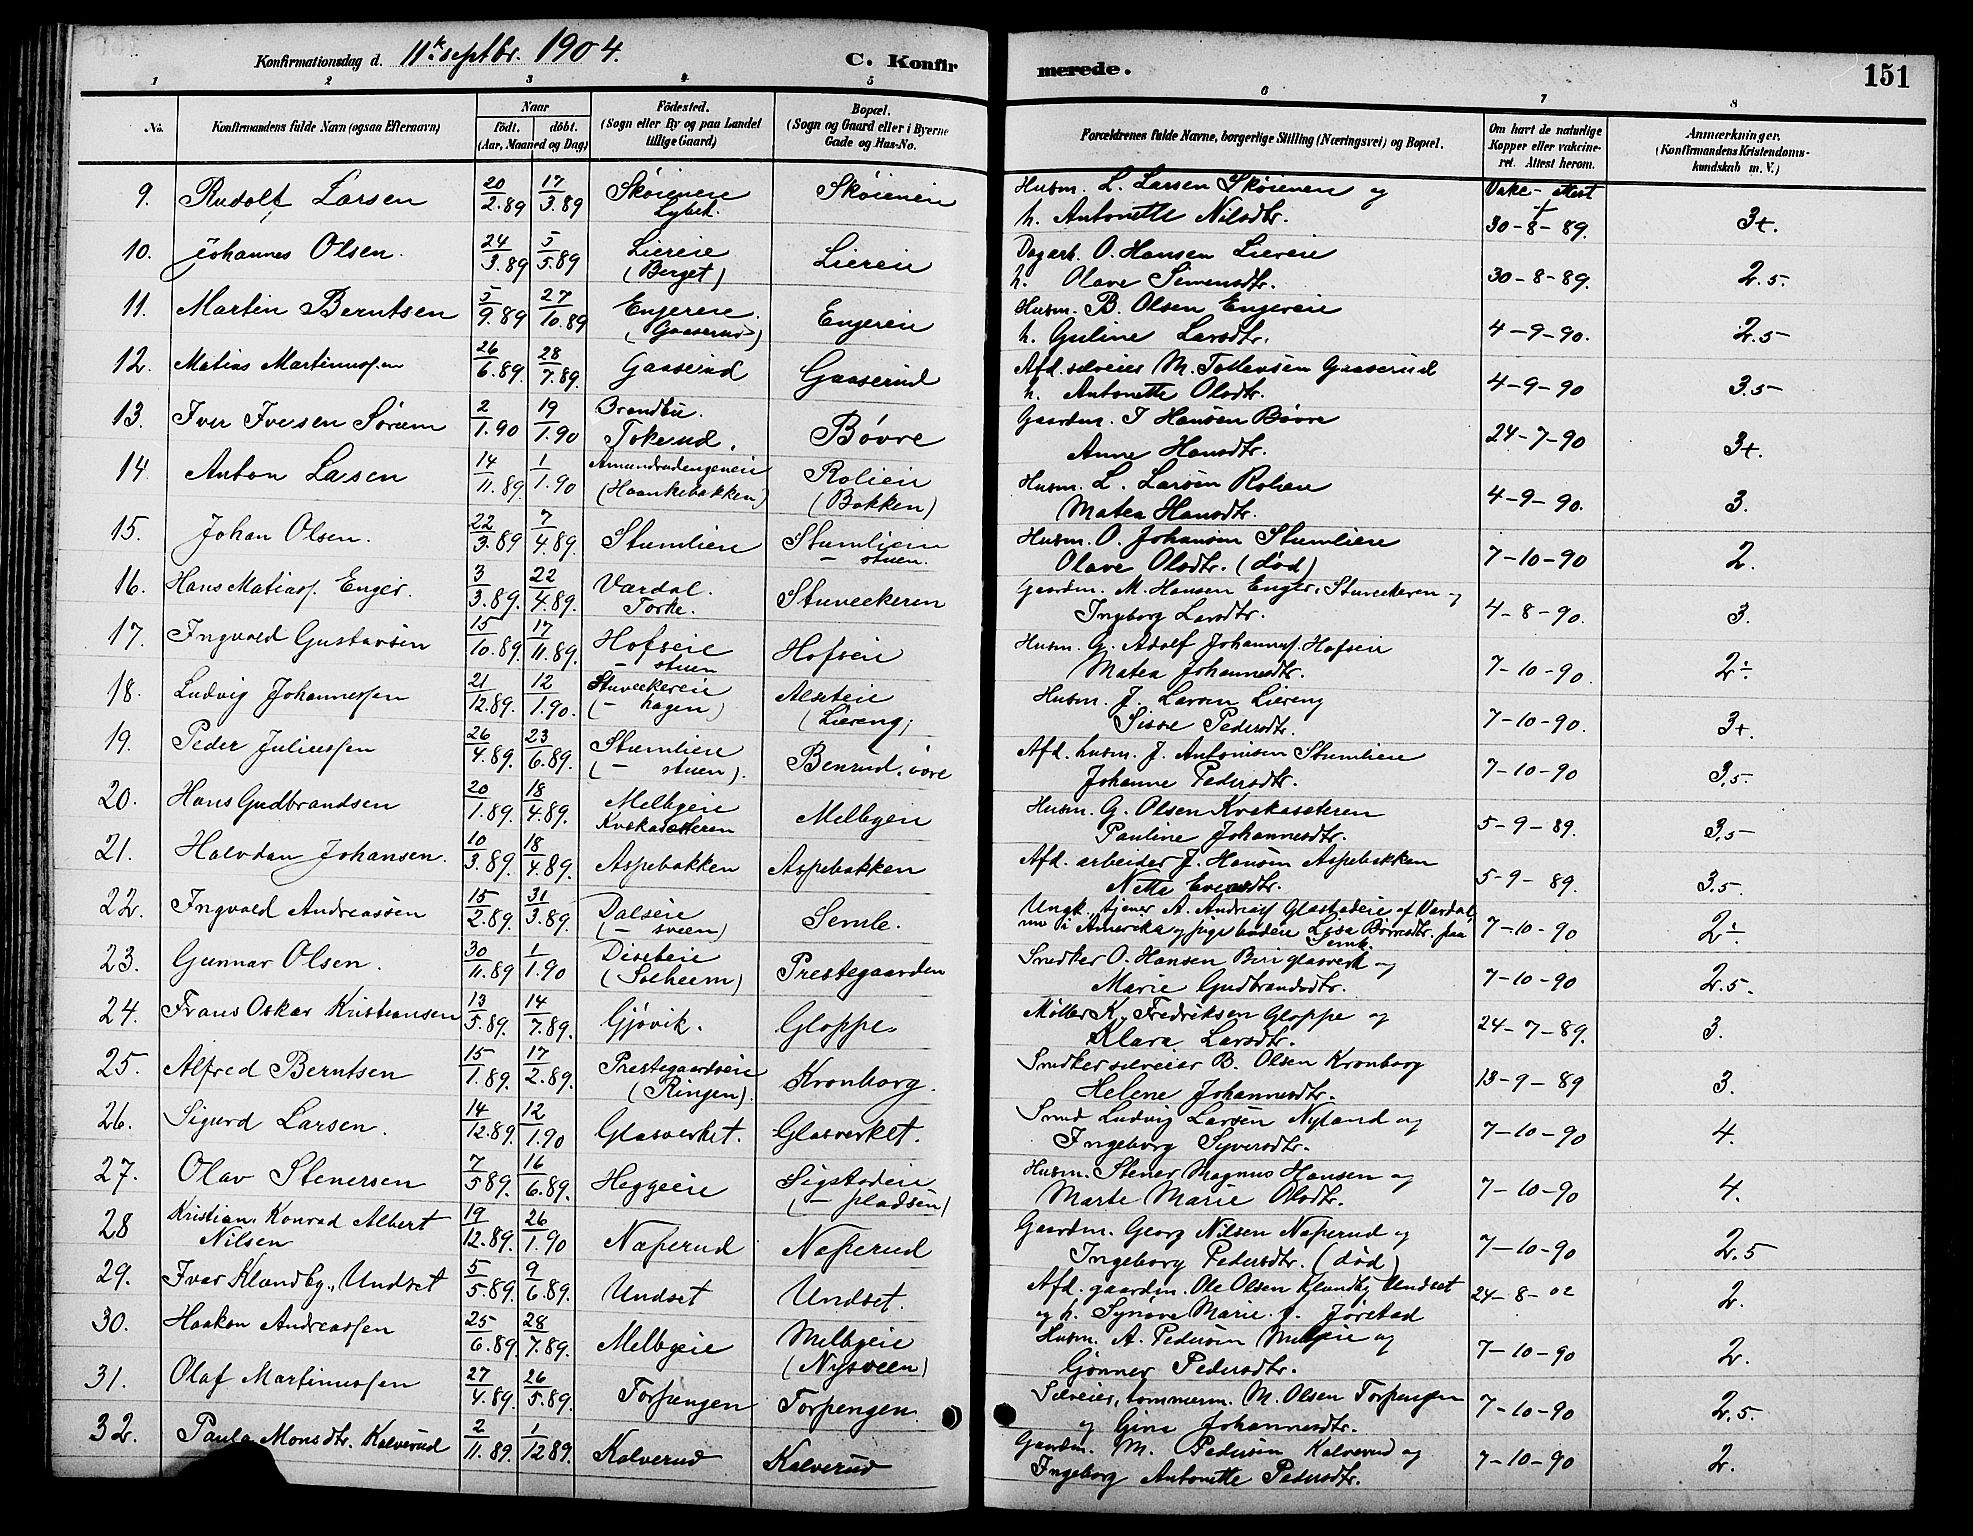 Konfirmationsdag d. 11te septbr. 1904. C. Konfirmerede. 151
1 2 3 4 5 6 7 8
No. Konfirmandens fulde Navn (ogsaa Efternavn) Naar født. døbt. (Aar, Maaned og Dag) Födested. (Sogn eller By og paa Landet tillige Gaard) Bopæl. (Sogn og Gaard eller i Byerne Gade og Hus-No. Forældrenes fulde Navne, borgerlige Stilling (Næringsvei) og Bopæl. Om havt de naturlige Kopper eller vakcineret. Attest herom. Anmærkninger. (Konfirmandens Kristendomskundskab m. V.)
9. Rudolf Larsen 20/2.89 17/3.89 Skøieneie Skøieneie Husm. L. Larsen Skøieneie og Vakc-attest
h. Antonette Nilsdtr. 30-8-89. 3+.
10. Johannes Olsen. 24/3.89 5/5.89 Liereie (Berget) Liereie Dagarb. O. Hansen Liereie
h. Olave Simensdtr. 30-8-89. 2.5.
11. Martin Berntsen 5/9.89 27/10.89 Engereie. (Gaaserud) Engereie Husm. B. Olsen Engereie
h. Guline Larsdtr. 4-9-90. 2.5
12. Matias Martinussen 26/6.89. 28/7.89. Gaaserud Gaaserud Afd. selveier M. Tollevsen Gaaserud
h. Antonette Olsdtr. 4-9-90 3.5
13. Iver Iversen Sørum 2/1.90 19/1.90 Brandbu. Tokerud. Bøvre Gaardm. I Hansen Bøvre
Anne Hansdtr. 24-7-90 3+.
14. Anton Larsen 14/11.89. 1/1.90 Amundrudengeneie (Haankebakken) Rolieie (Bakken) Husm. L. Larsen Rolieie
Matea Hansdtr. 4-9-90. 3.
15. Johan Olsen. 22/3.89 7/4.89. Stumlieie Stumlieie - stuen. Husm. O. Johansen Stumlieie
Olave Olsdtr. (død) 7-10-90 2.
16. Hans Matiass. Enger. 3/3.89. 22/4.89. Vardal. Torke. Stuveekeren Gaardm. M. Hansen Enger, Stuveekeren og
Ingeborg Larsdtr. 4-8-90. 3.
17. Ingvald Gustavsen 15/10.89. 17/11.89. Hofseie - stuen Hofseie Husm. G. Adolf Johannes. Hofseie
Matea Johannesdtr. 7-10-90. 2÷
18. Ludvig Johannessen 21/12.89. 12/1.90. Stuveekereie (- hagen) Alsteie (Liereng) Husm. J. Larsen Liereng
Sisse Pedersdtr. 7-10-90. 3+.
19. Peder Juliussen 26/4.89. 23/6.89. Stumlieie (- stuen). Benrud, øvre Afd. husm. J. Antonisen Stumlieie
Johanne Pedersdtr. 7-10-90 3.5.
20. Hans Gudbrandsen 20/1.89. 18/4.89. Melbyeie Kvekasæteren Melbyeie Husm. G. Olsen Kvekasæteren
Pauline Johannesdtr. 5-9-89. 3.5
21. Halvdan Johansen. 10/3.89. 18/4.89. Aspebakken Aspebakken Afd. arbeider J. Hansen Aspebakken
Netta Evensdtr. 5-9-89. 3.5.
22. Ingvald Andreassen 15/2.89 31/3.89. Dalseie (- sveen) Semle. Ungk., tjener A. Andreass. Glæstadeie af Vardal
nu i Amerika og pige budeie Lisa Børresdtr. paa Semb. 7-10-90 2÷
23. Gunnar Olsen. 30/11.89 1/1.90 Diseteie (Solheim) Prestegaarden Snedker O. Hansen Biri glasverk og
Marie Gudbrandsdtr. 7-10-90 2.5.
24. Frans Oskar Kristiansen 13/5.89. 14/7.89. Gjøvik. Gloppe. Møller K. Fredriksen Gloppe og
Klara Larsdtr. 24-7-89. 3.
25. Alfred Berntsen 15/1.89. 17/2.89. Prestegaardseie (Ringen). Kronborg. Snedker selveier B. Olsen Kronborg
Helene Johannesdtr. 13-9-89 3.
26. Sigurd Larsen. 14/12.89. 12/1.90 Glasverket. Glasverket. Smed Ludvig Larsen Nyland og
Ingeborg Syversdtr. 7-10-90 4.
27. Olav Stenersen 7/589. 16/6.89. Heggeie Sigstadeie (- pladsen) Husm. Stener Magnus Hansen og
Marte Marie Olsdtr. 7-10-90 4.
28 Kristian Konrad Albert Nilsen 19/12.89. 26/1.90 Næperud Næperud Gaardm. Georg Nilsen Næperud og
Ingeborg Pedersdtr. (død) 7-10-90 2.5
29. Ivar Klundby, Undset 5/5.89. 9/6.89. Undset Undset. Afd. gaardm. Ole Olsen Klundby Undset
og h. Synøve Marie J. Jørstad 24-8-02 2.
30. Haakon Andreassen 25/6.89. 28/7.89. Melbyeie Melbyeie (Nysveen) Husm. A. Pedersen Melbyeie og
Gjønner Pedersdtr. 7-10-90 2.
31. Olaf Martinussen 27/4.89. 26/5.89. Torpengen Torpengen. Selveier, tømmerm. M. Olsen Torpengen
og Gina Johannesdtr. 7-10-90 2.5.
32. Paula Monsdtr. Kalverud 2/11.89. 1/1289. Kalverud Kalverud Gaardm. M. Pedersen Kalverud og
Ingeborg Antonette Pedersdtr. 7-10-90 2.